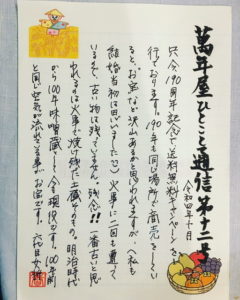 萬年屋ひとこと通信 第十二号
令和四年十一月
只今190周年記念で送料無料キャンペーンを
行っております。190年も同じ場所で商売をしてい
ると、お宝など沢山あるかと思われますが（私も
結婚当初は思いました）火事に二回も遭って
いるので、古い物は残っていません。残念!!一番古いと思
われるのは火事で焼け残った土蔵そのもの。明治時代
から100年味噌蔵として今も現役です。100年前
と同じ空気が流れる